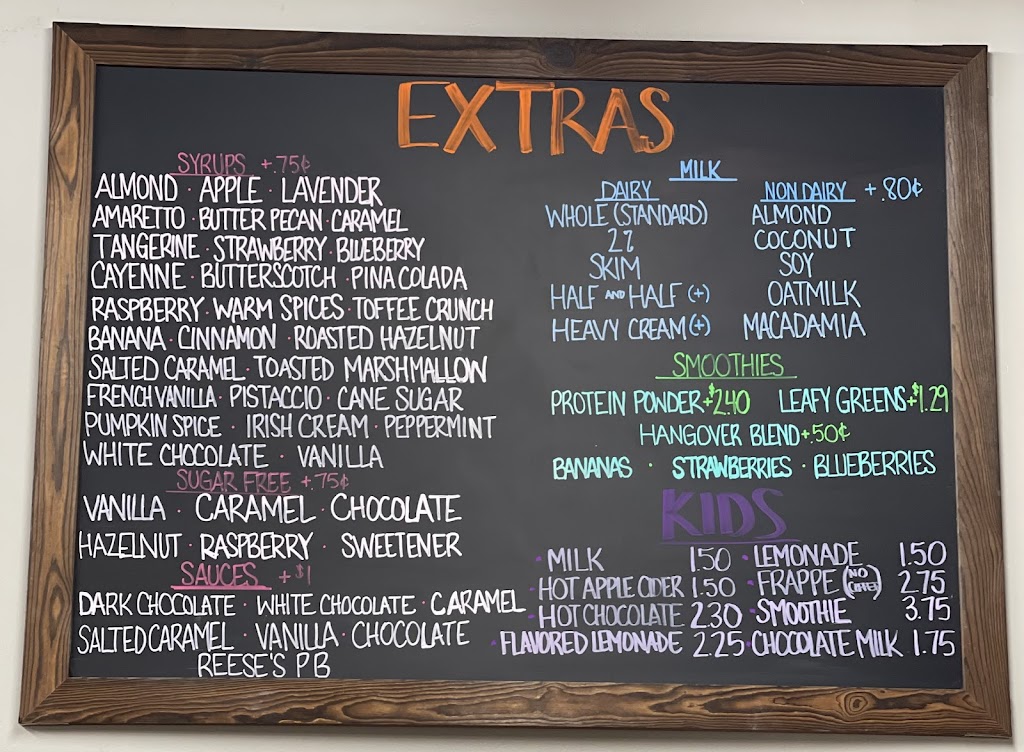 EXTRAS
SYRUPS +.75¢
ALMOND · APPLE · LAVENDER
AMARETTO · BUTTER PECAN · CARAMEL
TANGERINE · STRAWBERRY · BLUEBERRY
CAYENNE · BUTTERSCOTCH · PINA COLADA
RASPBERRY · WARM SPICES · TOFFEE CRUNCH
BANANA · CINNAMON · ROASTED HAZELNUT
SALTED CARAMEL · TOASTED MARSHMALLOW
FRENCH VANILLA · PISTACCIO · CANE SUGAR
PUMPKIN SPICE · IRISH CREAM · PEPPERMINT
WHITE CHOCOLATE · VANILLA
SUGAR FREE +.75¢
VANILLA · CARAMEL · CHOCOLATE
HAZELNUT · RASPBERRY · SWEETENER
SAUCES +$1
DARK CHOCOLATE · WHITE CHOCOLATE · CARAMEL
SALTED CARAMEL · VANILLA · CHOCOLATE
REESE'S PB
MILK
DAIRY
WHOLE (STANDARD)
2%
SKIM
HALF AND HALF (+)
HEAVY CREAM (+)
NON DAIRY +.80¢
ALMOND
COCONUT
SOY
OATMILK
MACADAMIA
SMOOTHIES
PROTEIN PONDER +$2.40 LEAFY GREENS +$1.29
HANGOVER BLEND +.50¢
BANANAS · STRAWBERRIES · BLUEBERRIES
KIDS
· MILK 1.50
· HOT APPLE CIDER 1.50
· HOT CHOCOLATE 2.30
· FLAVORED LEMONADE 2.25
· LEMONADE 1.50
· FRAPPE (NO COFFEE) 2.75
· SMOOTHIE 3.75
· CHOCOLATE MILK 1.75